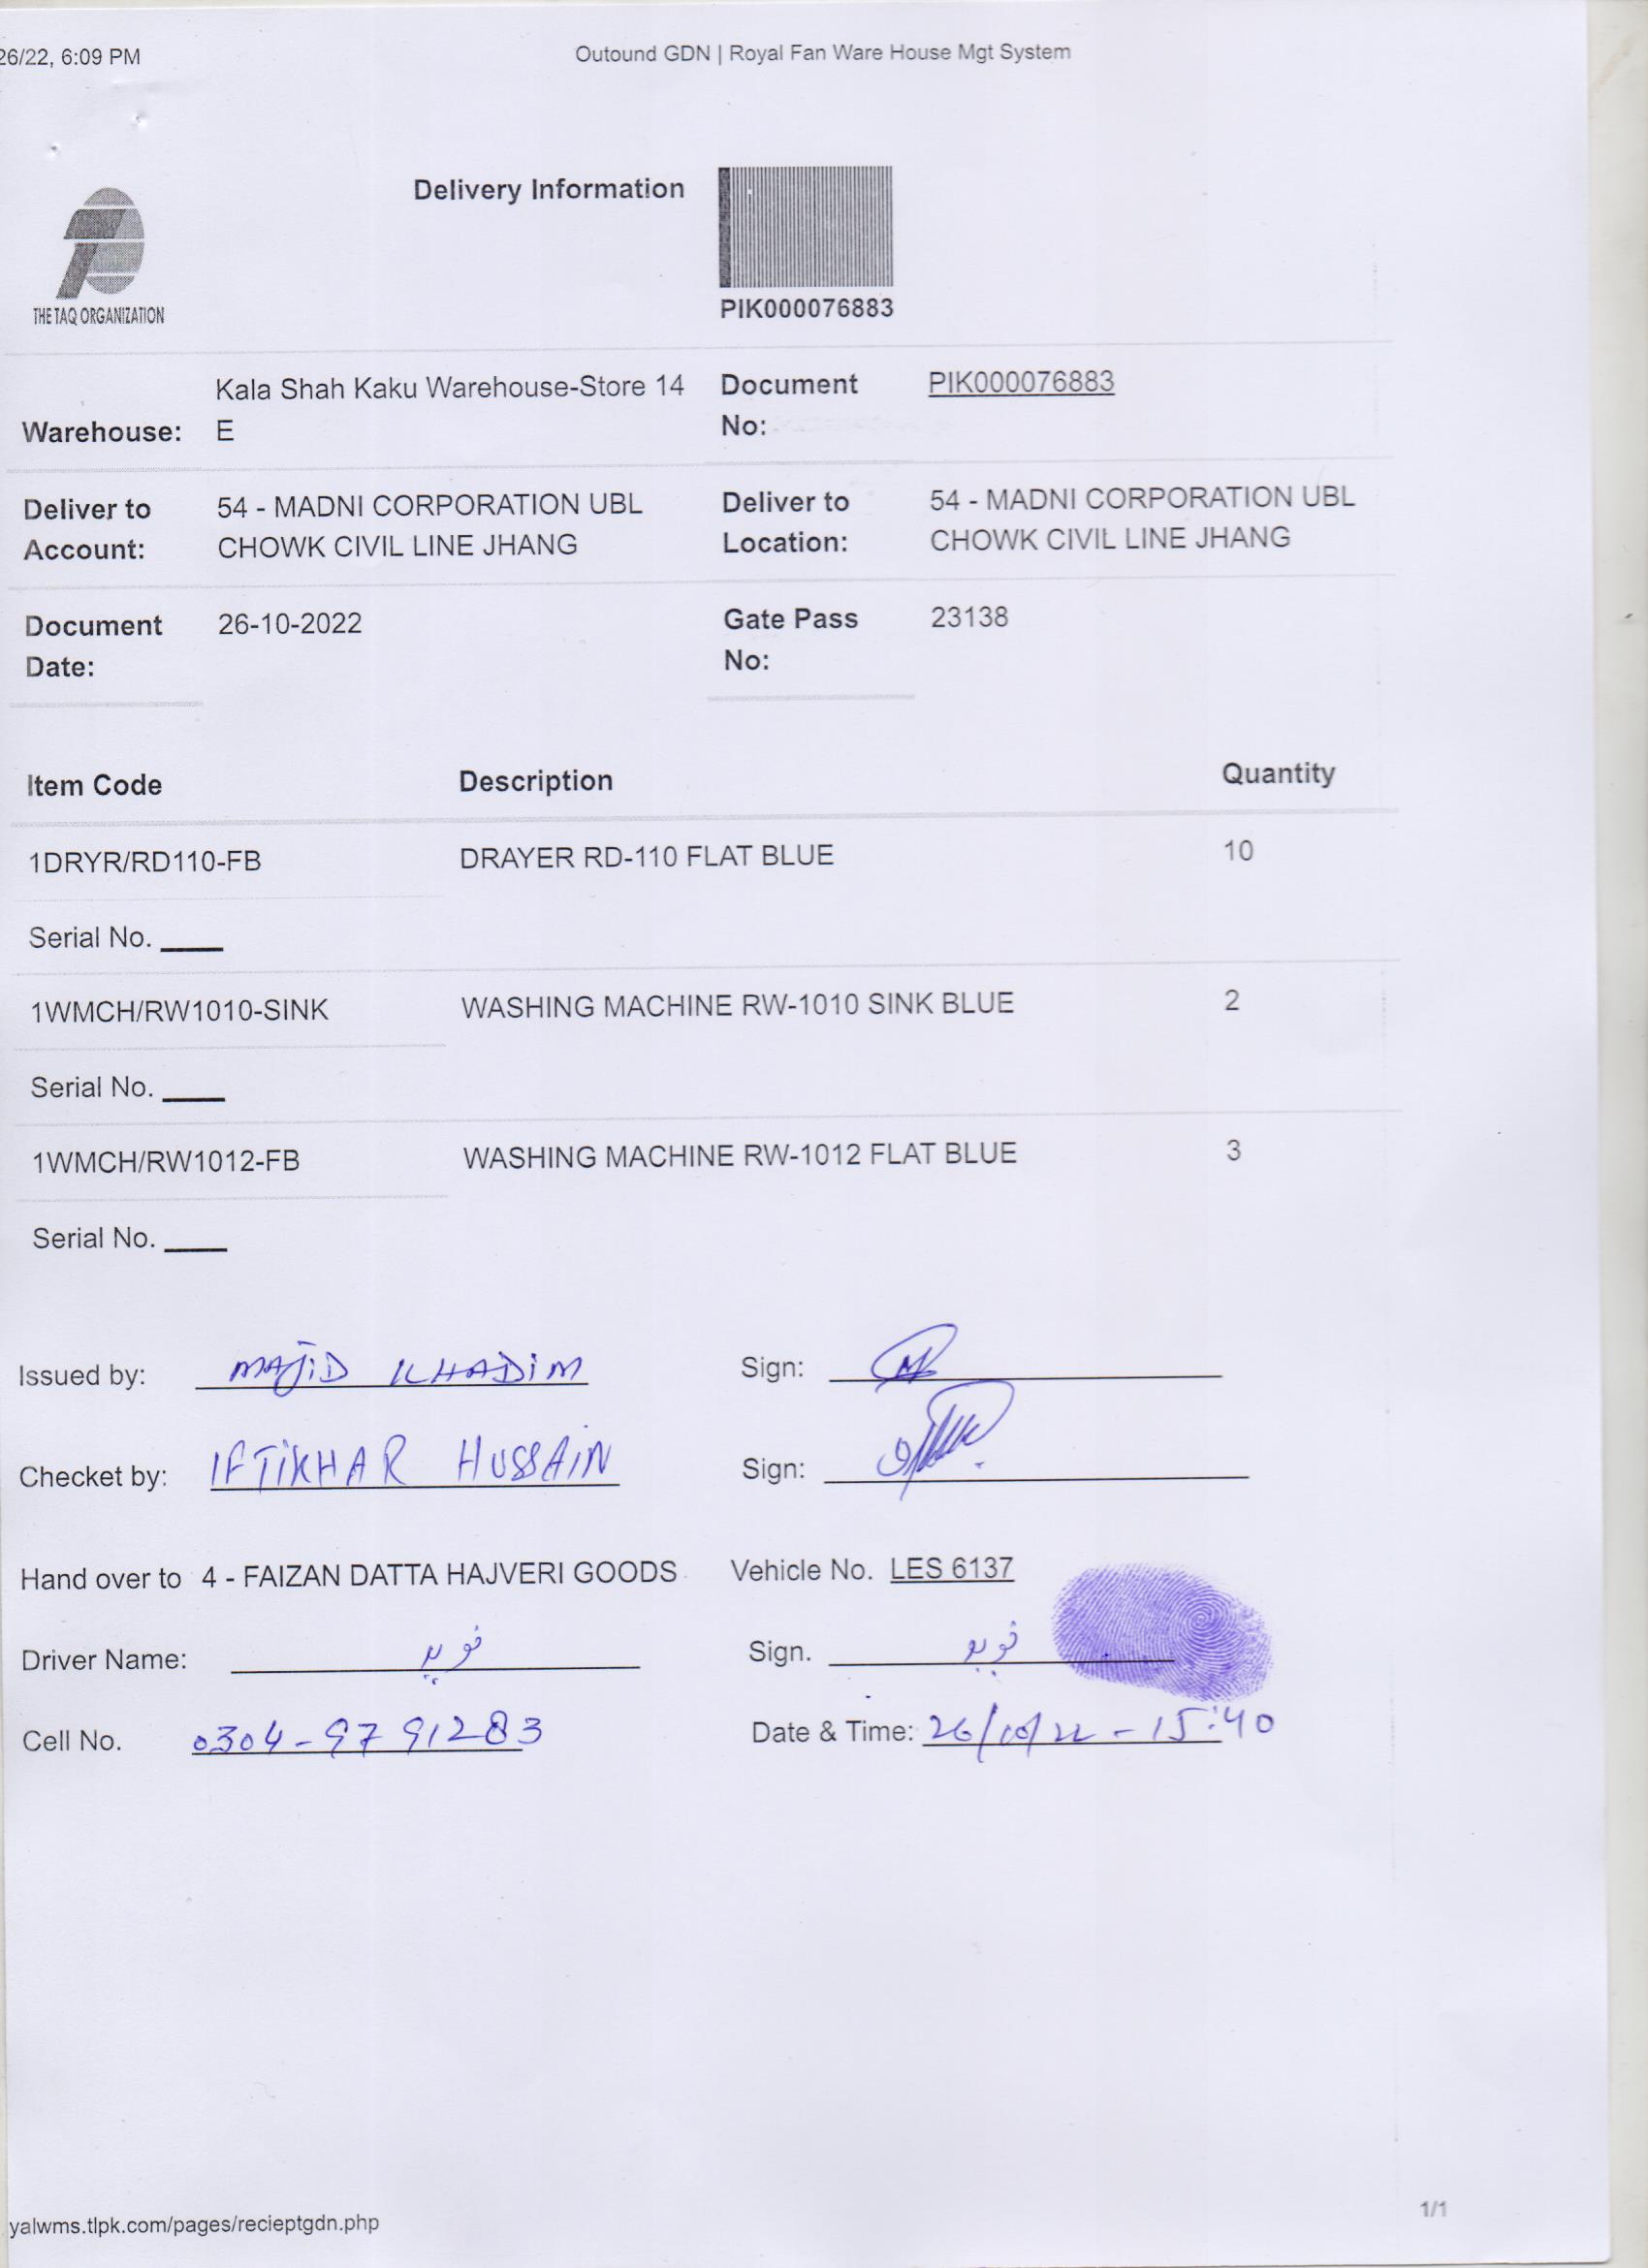 26/22, 6:09 PM
Outound GDN | Royal Fan Ware House Mgt System
Delivery Information
THE TAQ ORGANIZATION
PIK000076883
Warehouse: Kala Shah Kaku Warehouse-Store 14 E
Document No: PIK000076883
Deliver to Account: 54 - MADNI CORPORATION UBL CHOWK CIVIL LINE JHANG
Deliver to Location: 54 - MADNI CORPORATION UBL CHOWK CIVIL LINE JHANG
Document Date: 26-10-2022
Gate Pass No: 23138
Item Code Description Quantity
1DRYR/RD110-FB DRAYER RD-110 FLAT BLUE 10
Serial No.
1WMCH/RW1010-SINK WASHING MACHINE RW-1010 SINK BLUE 2
Serial No.
1WMCH/RW1012-FB WASHING MACHINE RW-1012 FLAT BLUE 3
Serial No.
Issued by: MAJID KHADIM Sign:
Checket by: IFTIKHAR HUSSAIN Sign:
Hand over to 4 - FAIZAN DATTA HAJVERI GOODS Vehicle No. LES 6137
Driver Name: نوید Sign. نوید
Cell No. 0304-9791283 Date & Time: 26/10/22 - 15:40
yalwms.tlpk.com/pages/recieptgdn.php
1/1